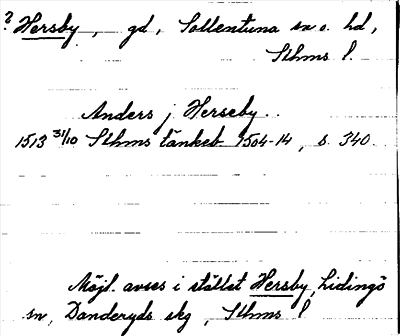 ? Hersby, gd, Sollentuna sn o. hd,
Sthms l.
Anders j Herseby.
1513 31/10 Sthms tänkeb. 1504-14, s. 340.
Möjl. avses i stället Hersby, Lidingö
sn, Danderyds skg, Sthms l